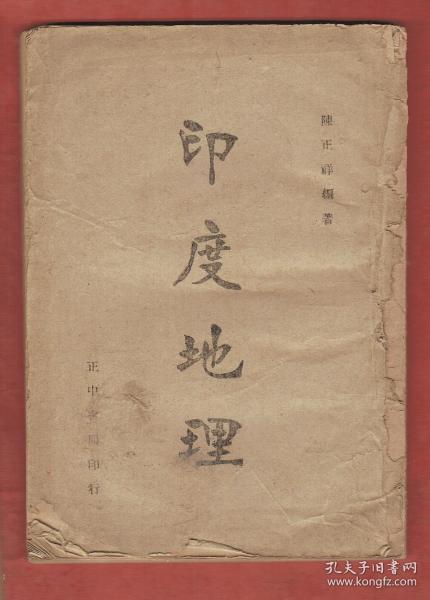 陳正祥編著
印度地理
正中書局印行
孔夫子旧书网
www.kongfz.com